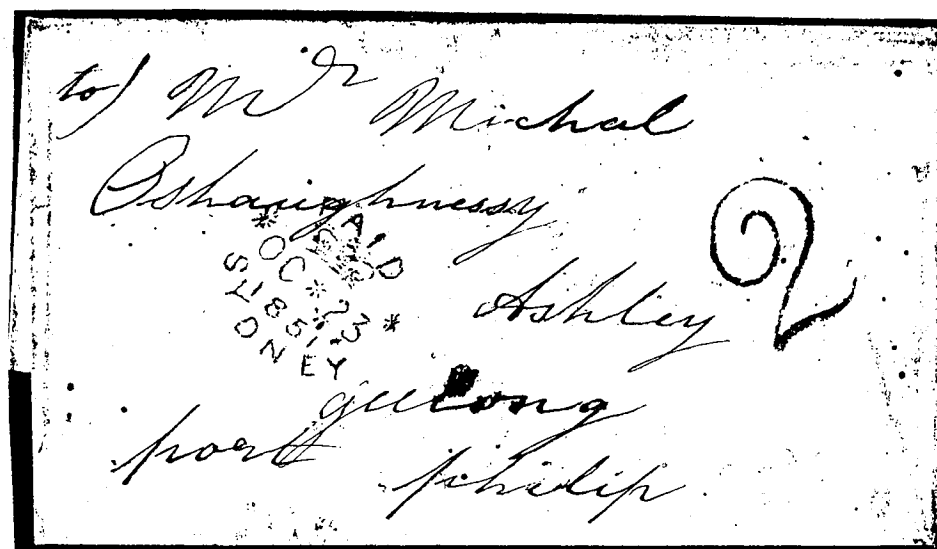 to) Mr Michal
Oshaughnessy
PAID
* OC * 23 *
1851
SYDNEY
2
Ashley
geelong
port philip